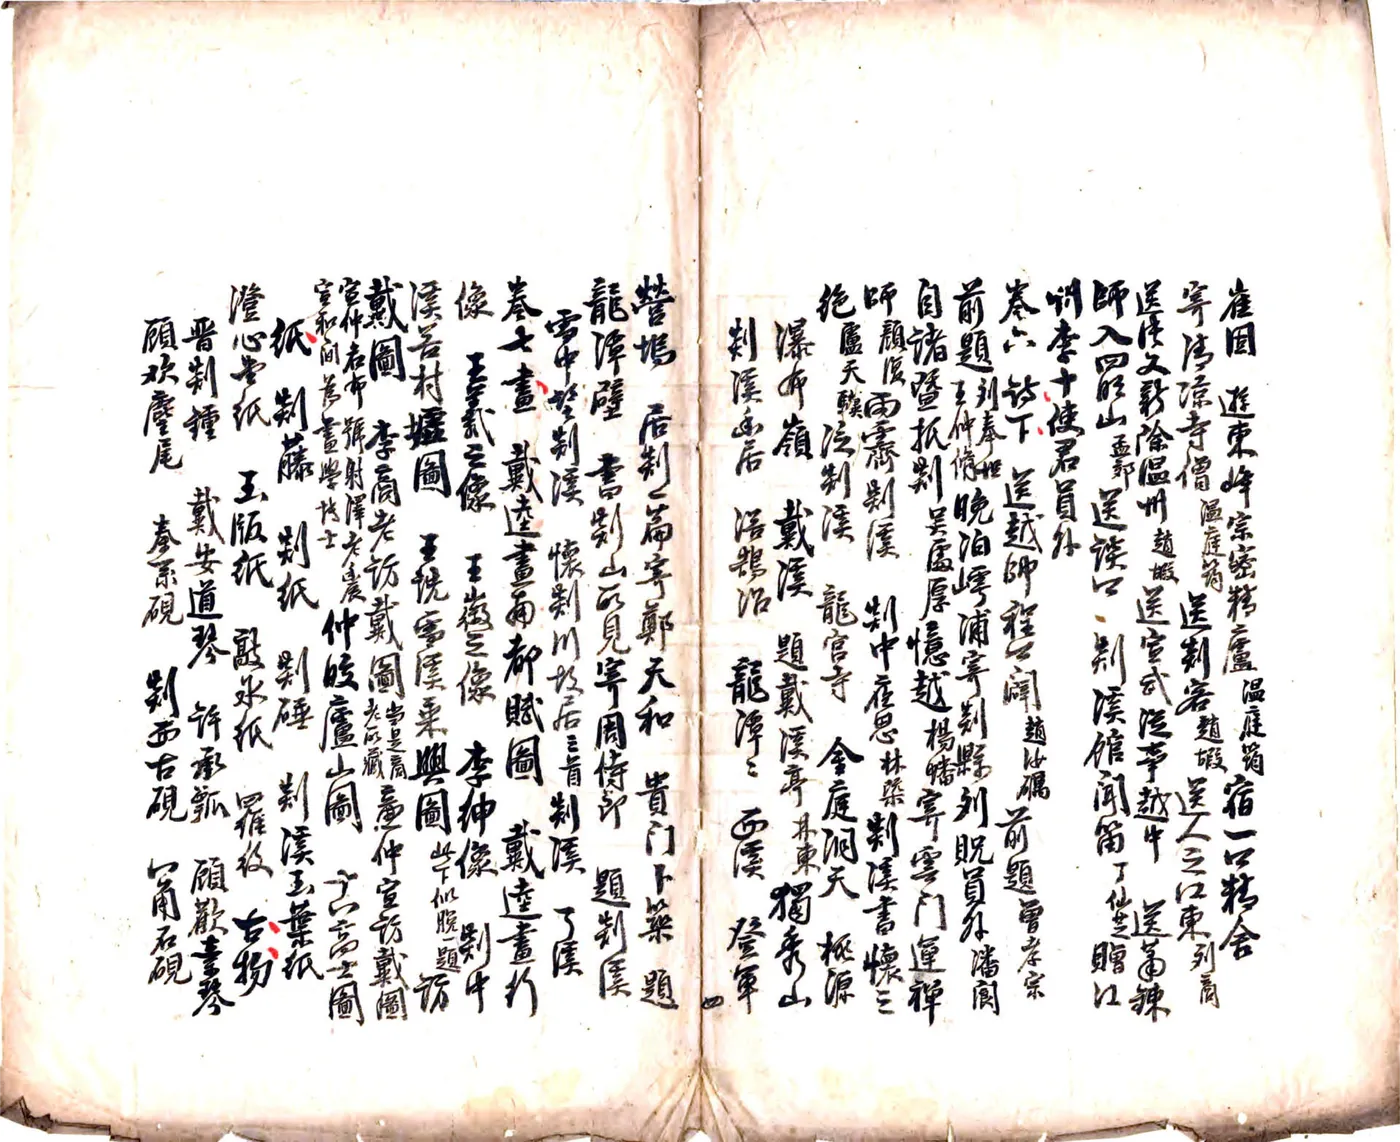 崔國　遊東峰宗密精廬溫庭筠宿一口精舍
寄清凉寺僧溫庭筠　送剡客趙嘏　送人之江東列商
送張又新除溫州趙嘏　送宣武從事越中　送蕭鍊
師入四明山孟郊　送談口　剡溪館聞笛丁仙芝贈江
州李十使君員外
卷六詩下　送越帥程公闢趙汝礪　前題曾孝宗
前題列奉世王仲脩晚泊嶀浦寄剡縣列貺員外潘閬
自諸暨抵剡吳處厚憶越楊蟠寄雲门運禅
師顏復雨霽剡溪　剡中在思林槩剡溪書懷三
絶盧天驥泛剡溪　龍宮寺　金庭洞天　桃源
瀑布嶺　戴溪　題戴溪亭林東獨秀山
剡溪幽居　浴鵠沼　龍潭二　西溪　發軍
四
營塢　居剡一篇寄鄭天和　貴门卜築　題
龍潭壁　書剡山所見寄周侍郎　題剡溪
雪中望剡溪　懷剡川故居三首剡溪　了溪
卷七畫　戴逵畫南都賦圖　戴逵畫行
像　王羲之像　王徽之像　李紳像　剡中
溪谷村墟圖　王詵雪溪乘興圖此下似脫一題訪
戴圖　李商老訪戴圖當是商老所藏　廉仲宣訪戴圖
宣仲名布號射澤老農宣和间為畫學博士仲皎廬山圖　十六高士圖
紙　剡藤　剡纸　剡硾　剡溪玉葉紙
澄心堂纸　玉版纸　敲氷纸　羅紋　古物
晋剡鍾　戴安道琴　許承瓢　顧歡素琴
顧欢麈尾　秦系硯　剡西古硯　口角石硯